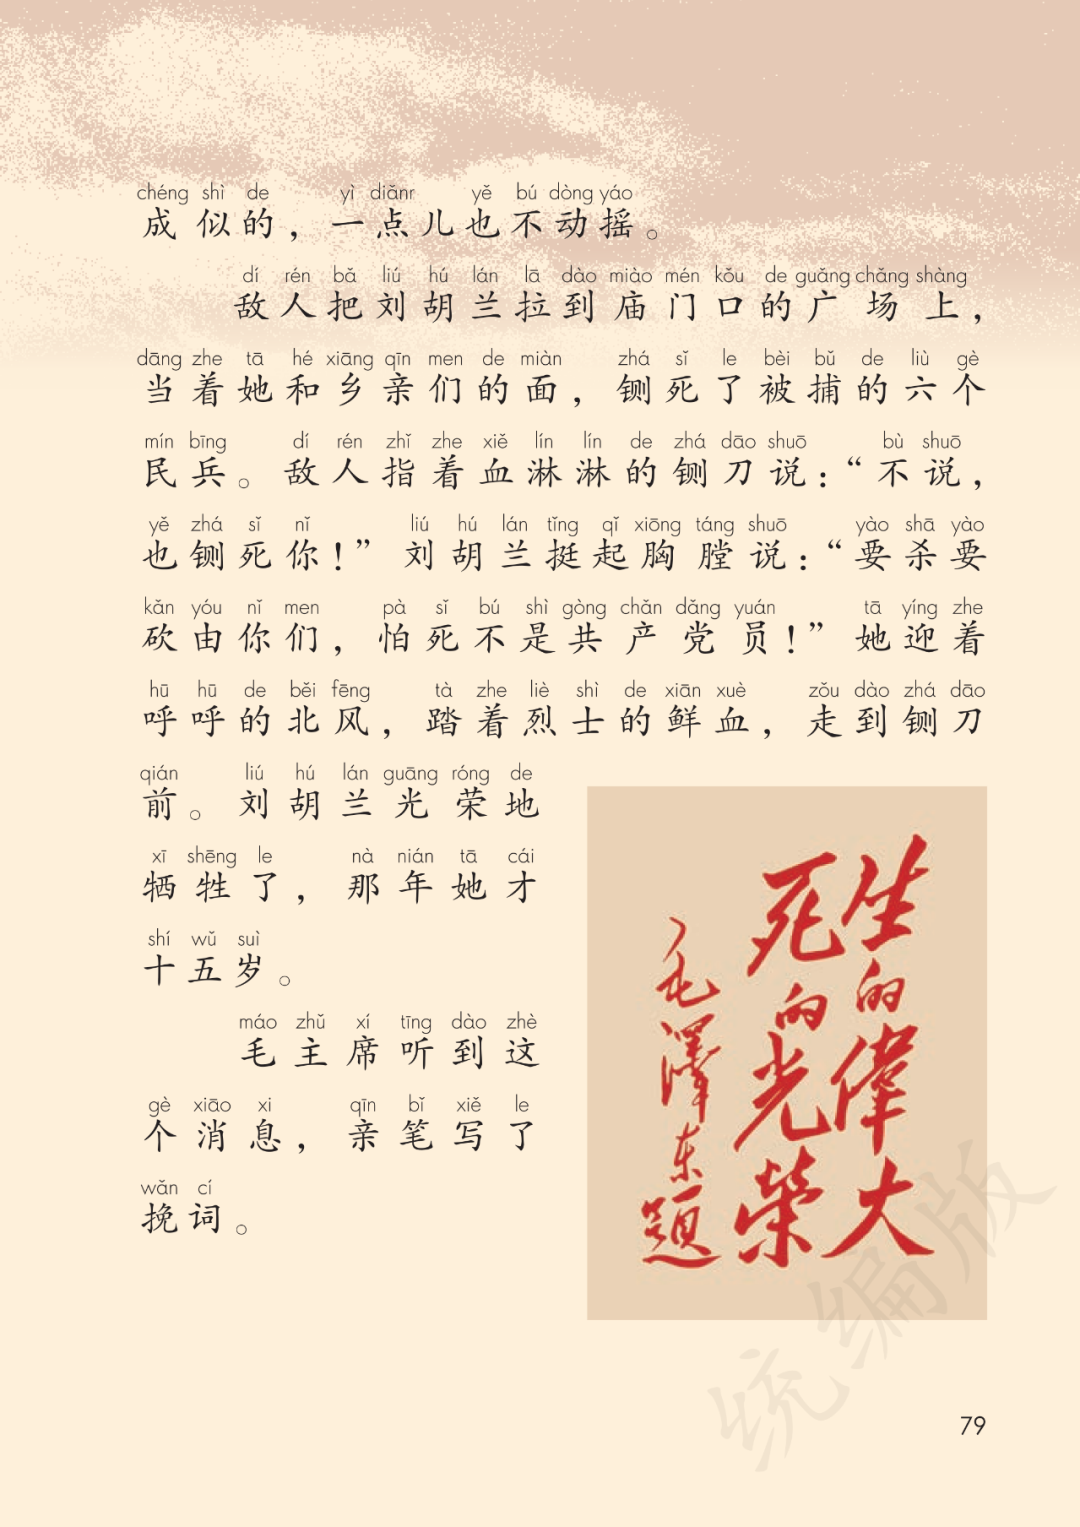 chéng shì de yì diǎnr yě bú dòng yáo
成似的，一点儿也不动摇。
dí rén bǎ liú hú lán lā dào miào mén kǒu de guǎng chǎng shàng
敌人把刘胡兰拉到庙门口的广场上，
dāng zhe tā hé xiāng qīn men de miàn zhá sǐ le bèi bǔ de liù gè
当着她和乡亲们的面，铡死了被捕的六个
mín bīng dí rén zhǐ zhe xiě lín lín de zhá dāo shuō bù shuō
民兵。敌人指着血淋淋的铡刀说：“不说，
yě zhá sǐ nǐ liú hú lán tǐng qǐ xiōng táng shuō yào shā yào
也铡死你！”刘胡兰挺起胸膛说：“要杀要
kǎn yóu nǐ men pà sǐ bú shì gòng chǎn dǎng yuán tā yíng zhe
砍由你们，怕死不是共产党员！”她迎着
hū hū de běi fēng tà zhe liè shì de xiān xuè zǒu dào zhá dāo
呼呼的北风，踏着烈士的鲜血，走到铡刀
qián liú hú lán guāng róng de
前。刘胡兰光荣地
xī shēng le nà nián tā cái
牺牲了，那年她才
shí wǔ suì
十五岁。
máo zhǔ xí tīng dào zhè
毛主席听到这
gè xiāo xi qīn bǐ xiě le
个消息，亲笔写了
wǎn cí
挽词。
生的偉大
死的光榮
毛澤东题
统编版
79